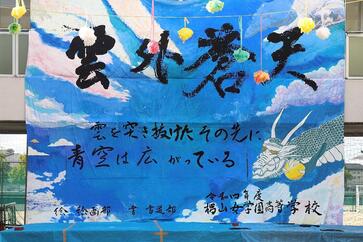 雲外蒼天
雲を突き抜けたその先に
青空は広がっている
令和四年度
絵 絵画部 書 書道部 椙山女学園高等学校